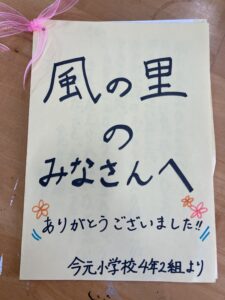 風の里
の
みなさんへ
ありがとうございました!!
今元小学校4年2組より